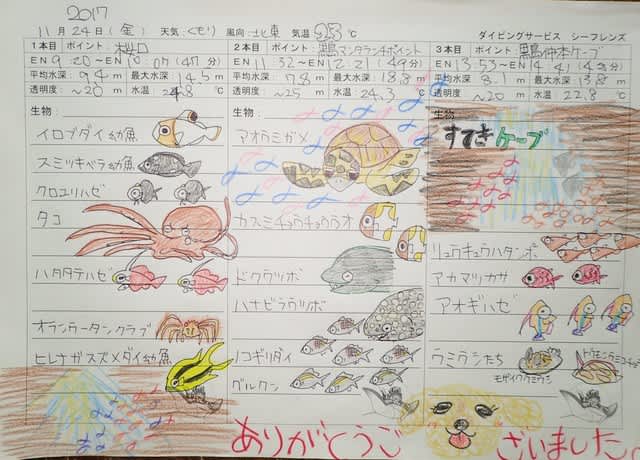 2017
11月24日(金) 天気:くもり 風向:北東 気温 ℃ ダイビングサービス シーフレンズ
1本目 ポイント: 桜口
EN 9:20~ 10:07 (47分)
平均水深: 9.4 m 最大水深 14.5 m
透明度: ~20 m 水温 ℃
生物:
イロブダイ幼魚
スミツキベラ幼魚
クロユリハゼ
タコ
ハタタテハゼ
オランウータンクラブ
ヒレナガスズメダイ幼魚
2本目 ポイント: 黒島マンタランチポイント
EN 11:32~ 12:21 (49分)
平均水深: 7.8 m 最大水深 18.8 m
透明度: ~25 m 水温: 24.3 ℃
生物:
アオウミガメ
カスミチョウチョウウオ
ドクウツボ
ハナビラウツボ
ノコギリダイ
グルクン
3本目 ポイント: 黒島仲本ケーブ
EN 13:53~ 14:41 (48分)
平均水深: 8.1 m 最大水深: 13.8 m
透明度: ~20 m 水温: 22.8 ℃
生物:
すてきケーブ
リュウキュウハタンポ
アカマツカサ
アオギハゼ
ウミウシたち
モザイクウミウシ
ありがとうございました。